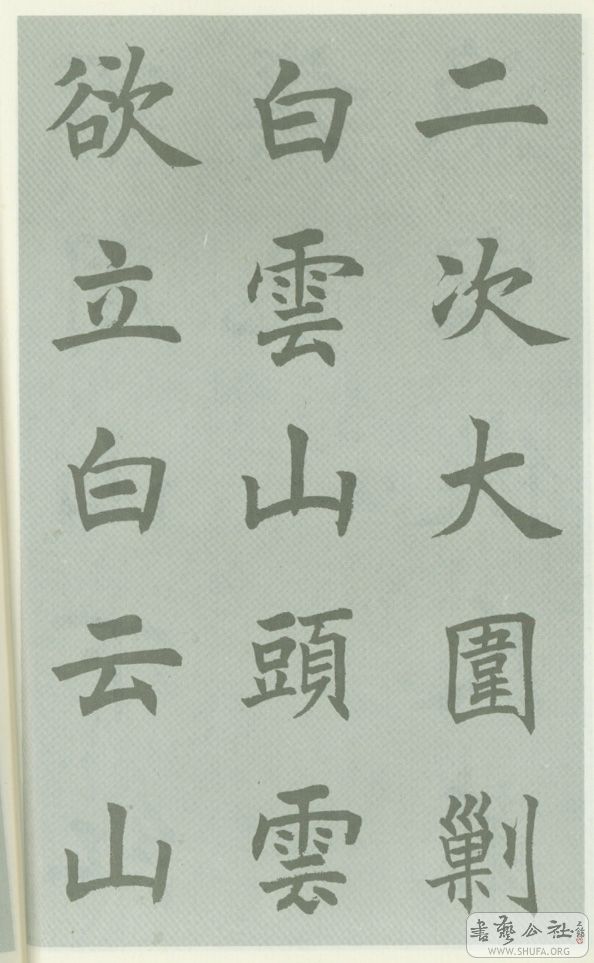 二次大圍剿
白雲山頭雲
欲立白云山
書藝公社
WWW.SHUFA.ORG